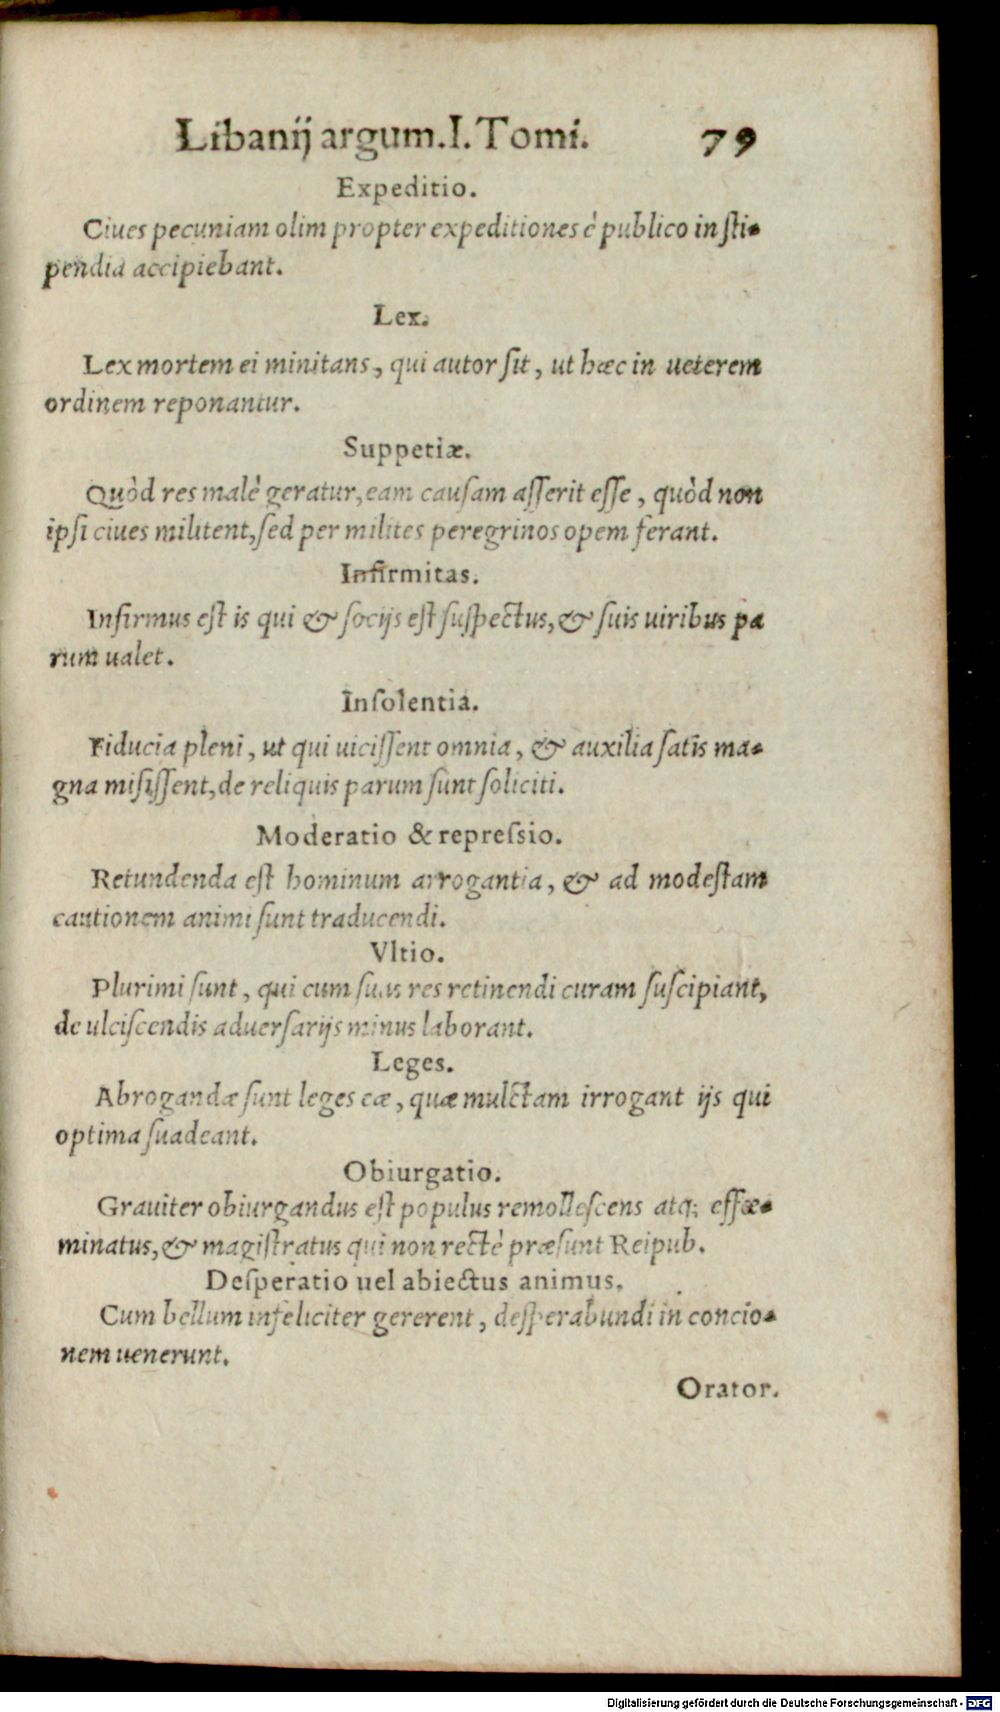 Libanij argum. I. Tomi. 79
Expeditio.
Ciues pecuniam olim propter expeditiones è publico in ſti-
pendia accipiebant.
Lex.
Lex mortem ei minitans, qui autor ſit, ut hæc in ueterem
ordinem reponantur.
Suppetiæ.
Quòd res malè geratur, eam cauſam aſſerit eſſe, quòd non
ipſi ciues militent, ſed per milites peregrinos opem ferant.
Infirmitas.
Infirmus eſt is qui & ſocijs eſt ſuſpectus, & ſuis uiribus pa
rum ualet.
Inſolentia.
Fiducia pleni, ut qui uiciſſent omnia, & auxilia ſatis ma-
gna miſiſſent, de reliquis parum ſunt ſoliciti.
Moderatio & repreſsio.
Retundenda eſt hominum arrogantia, & ad modeſtam
cautionem animi ſunt traducendi.
Vltio.
Plurimi ſunt, qui cum ſuas res retinendi curam ſuſcipiant,
de ulciſcendis aduerſarijs minus laborant.
Leges.
Abrogandæ ſunt leges eæ, quæ mulctam irrogant ijs qui
optima ſuadeant.
Obiurgatio.
Grauiter obiurgandus eſt populus remolleſcens atq; effœ-
minatus, & magiſtratus qui non rectè præſunt Reipub.
Deſperatio uel abiectus animus.
Cum bellum infeliciter gererent, deſperabundi in concio-
nem uenerunt.
Orator.
Digitalisierung gefördert durch die Deutsche Forschungsgemeinschaft - DFG